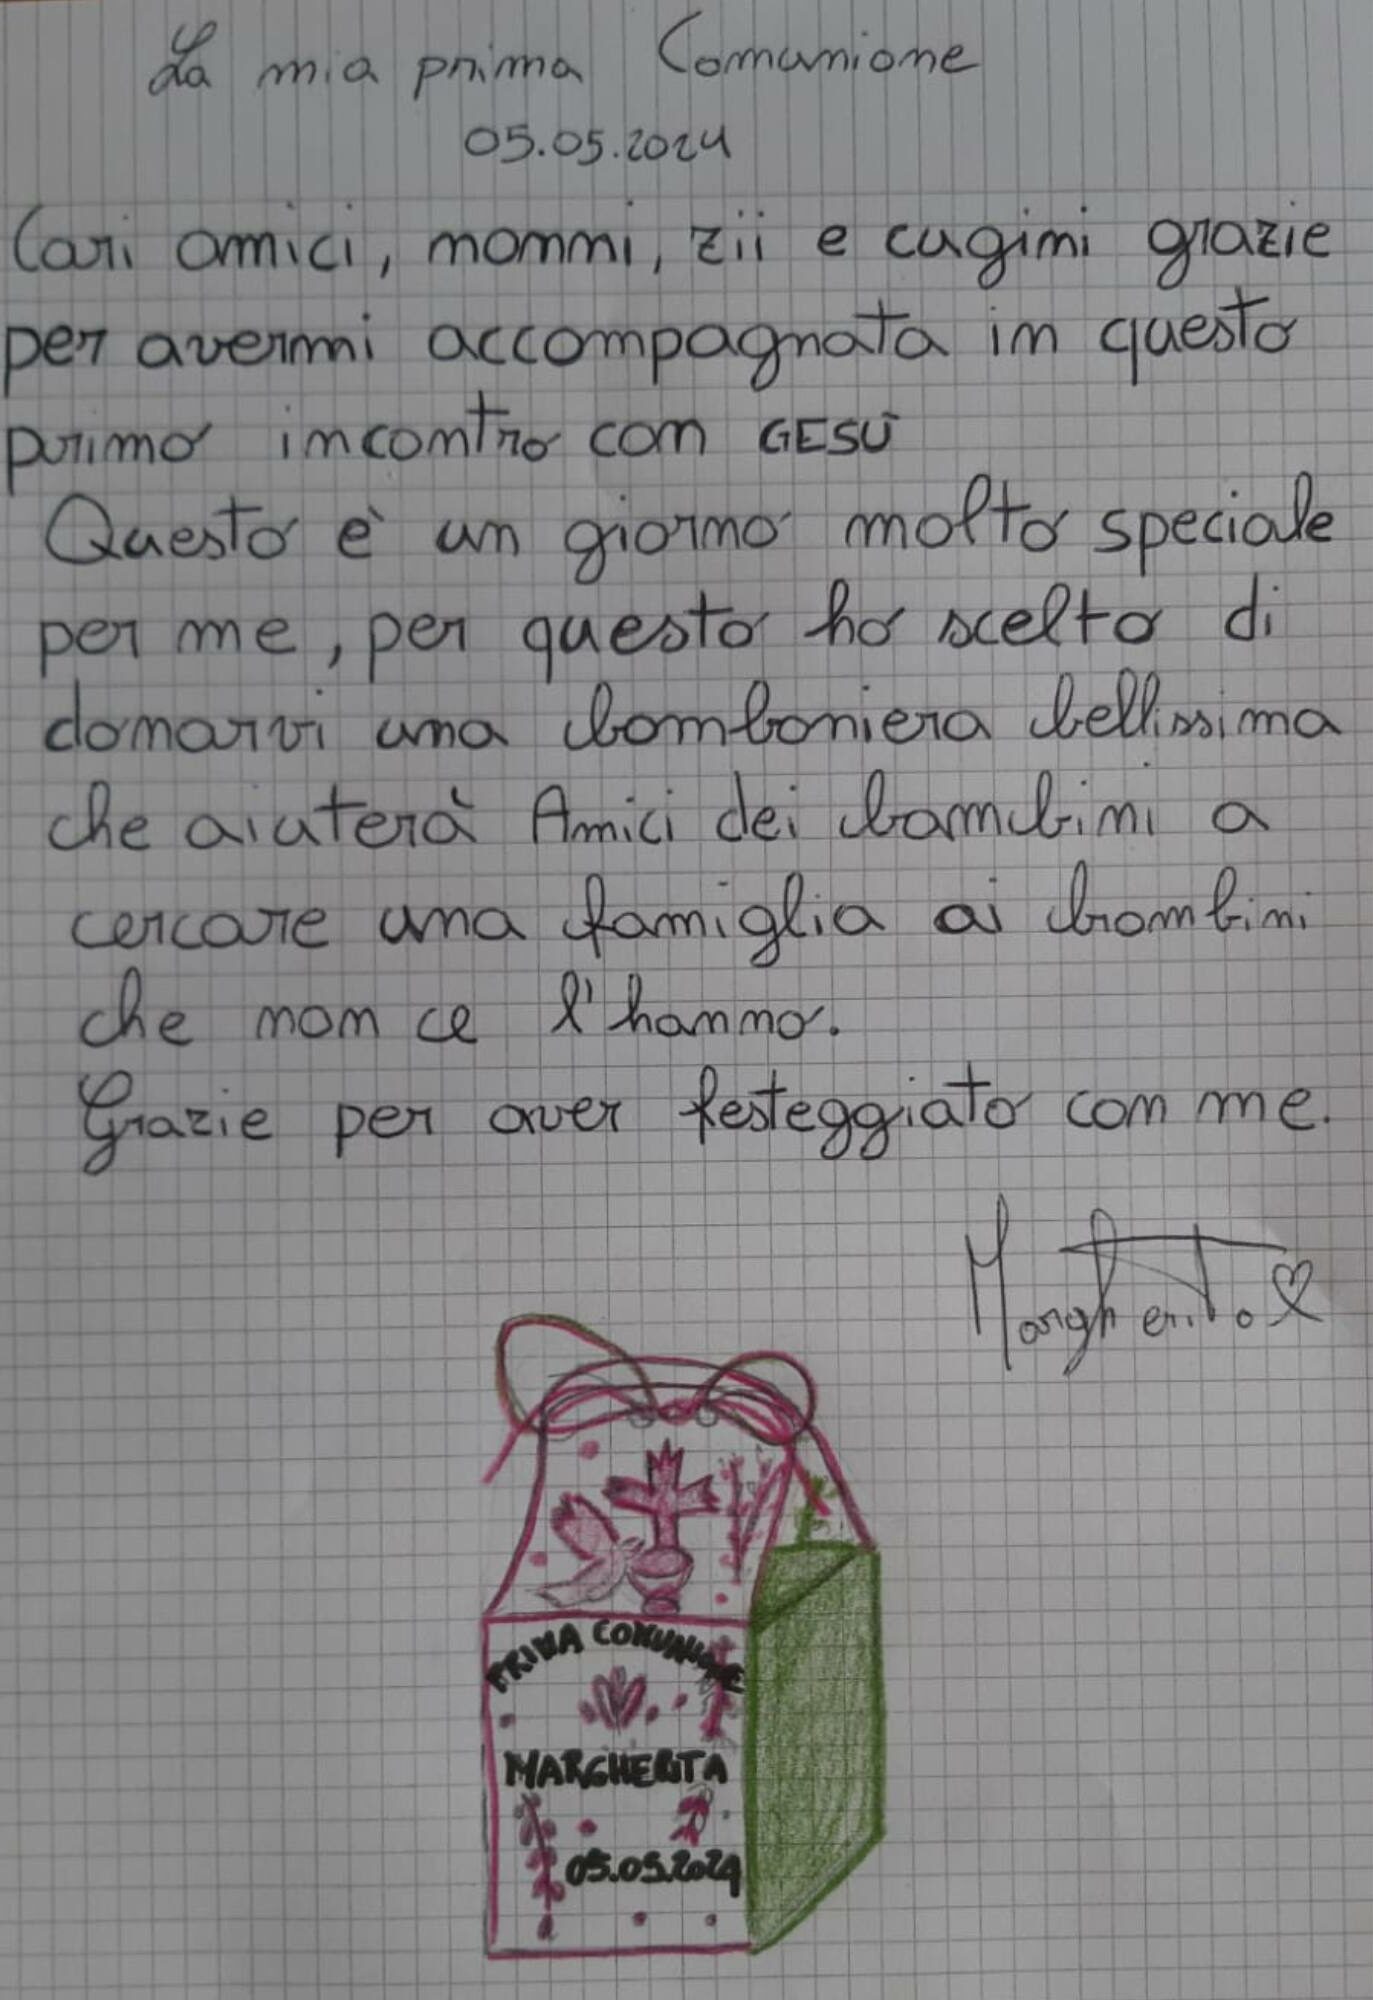 La mia prima Comunione
05.05.2024
Cari amici, nonni, zii e cugini grazie
per avermi accompagnata in questo
primo incontro con GESÙ
Questo è un giorno molto speciale
per me, per questo ho scelto di
donarvi una bomboniera bellissima
che aiuterà Amici dei bambini a
cercare una famiglia ai bambini
che non ce l'hanno.
Grazie per aver festeggiato con me.
Margherita
PRIMA COMUNIONE
MARGHERITA
05.05.2024